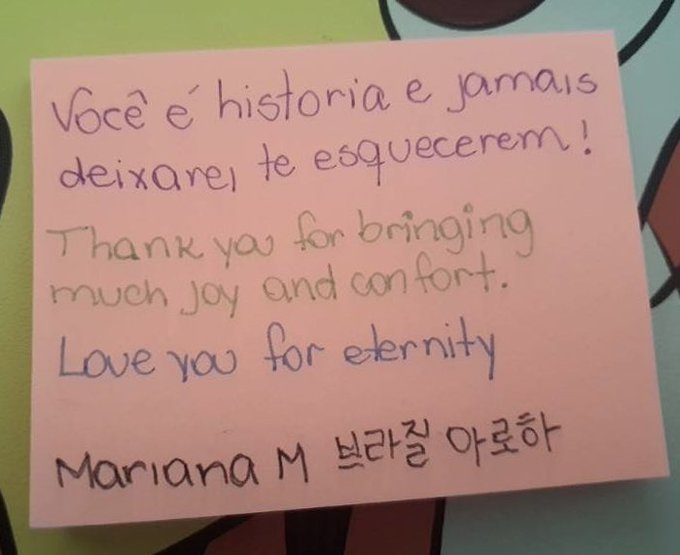 Você é historia e jamais
deixarei te esquecerem!
Thank you for bringing
much joy and confort.
Love you for eternity
Mariana M 브라질 아로하